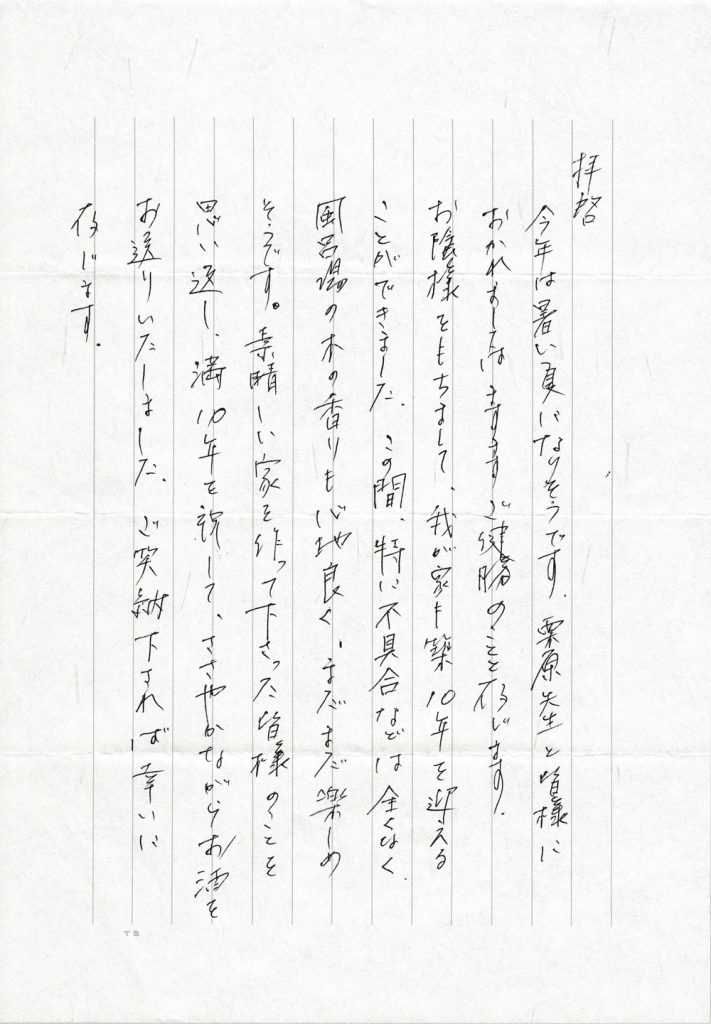 拝啓
今年は暑い夏になりそうです。栗原先生と皆様に
おかれましては ますますご健勝のことと存じます。
お陰様をもちまして、我が家も築10年を迎える
ことができました。この間、特に不具合などは全くなく、
風呂場の木の香りも心地良く、まだまだ楽しめ
そうです。素晴しい家を作って下さった皆様のことを
思い返し、満10年を祝して、ささやかながらお酒を
お送りいたしました。ご笑納下されば幸いに
存じます。
TS